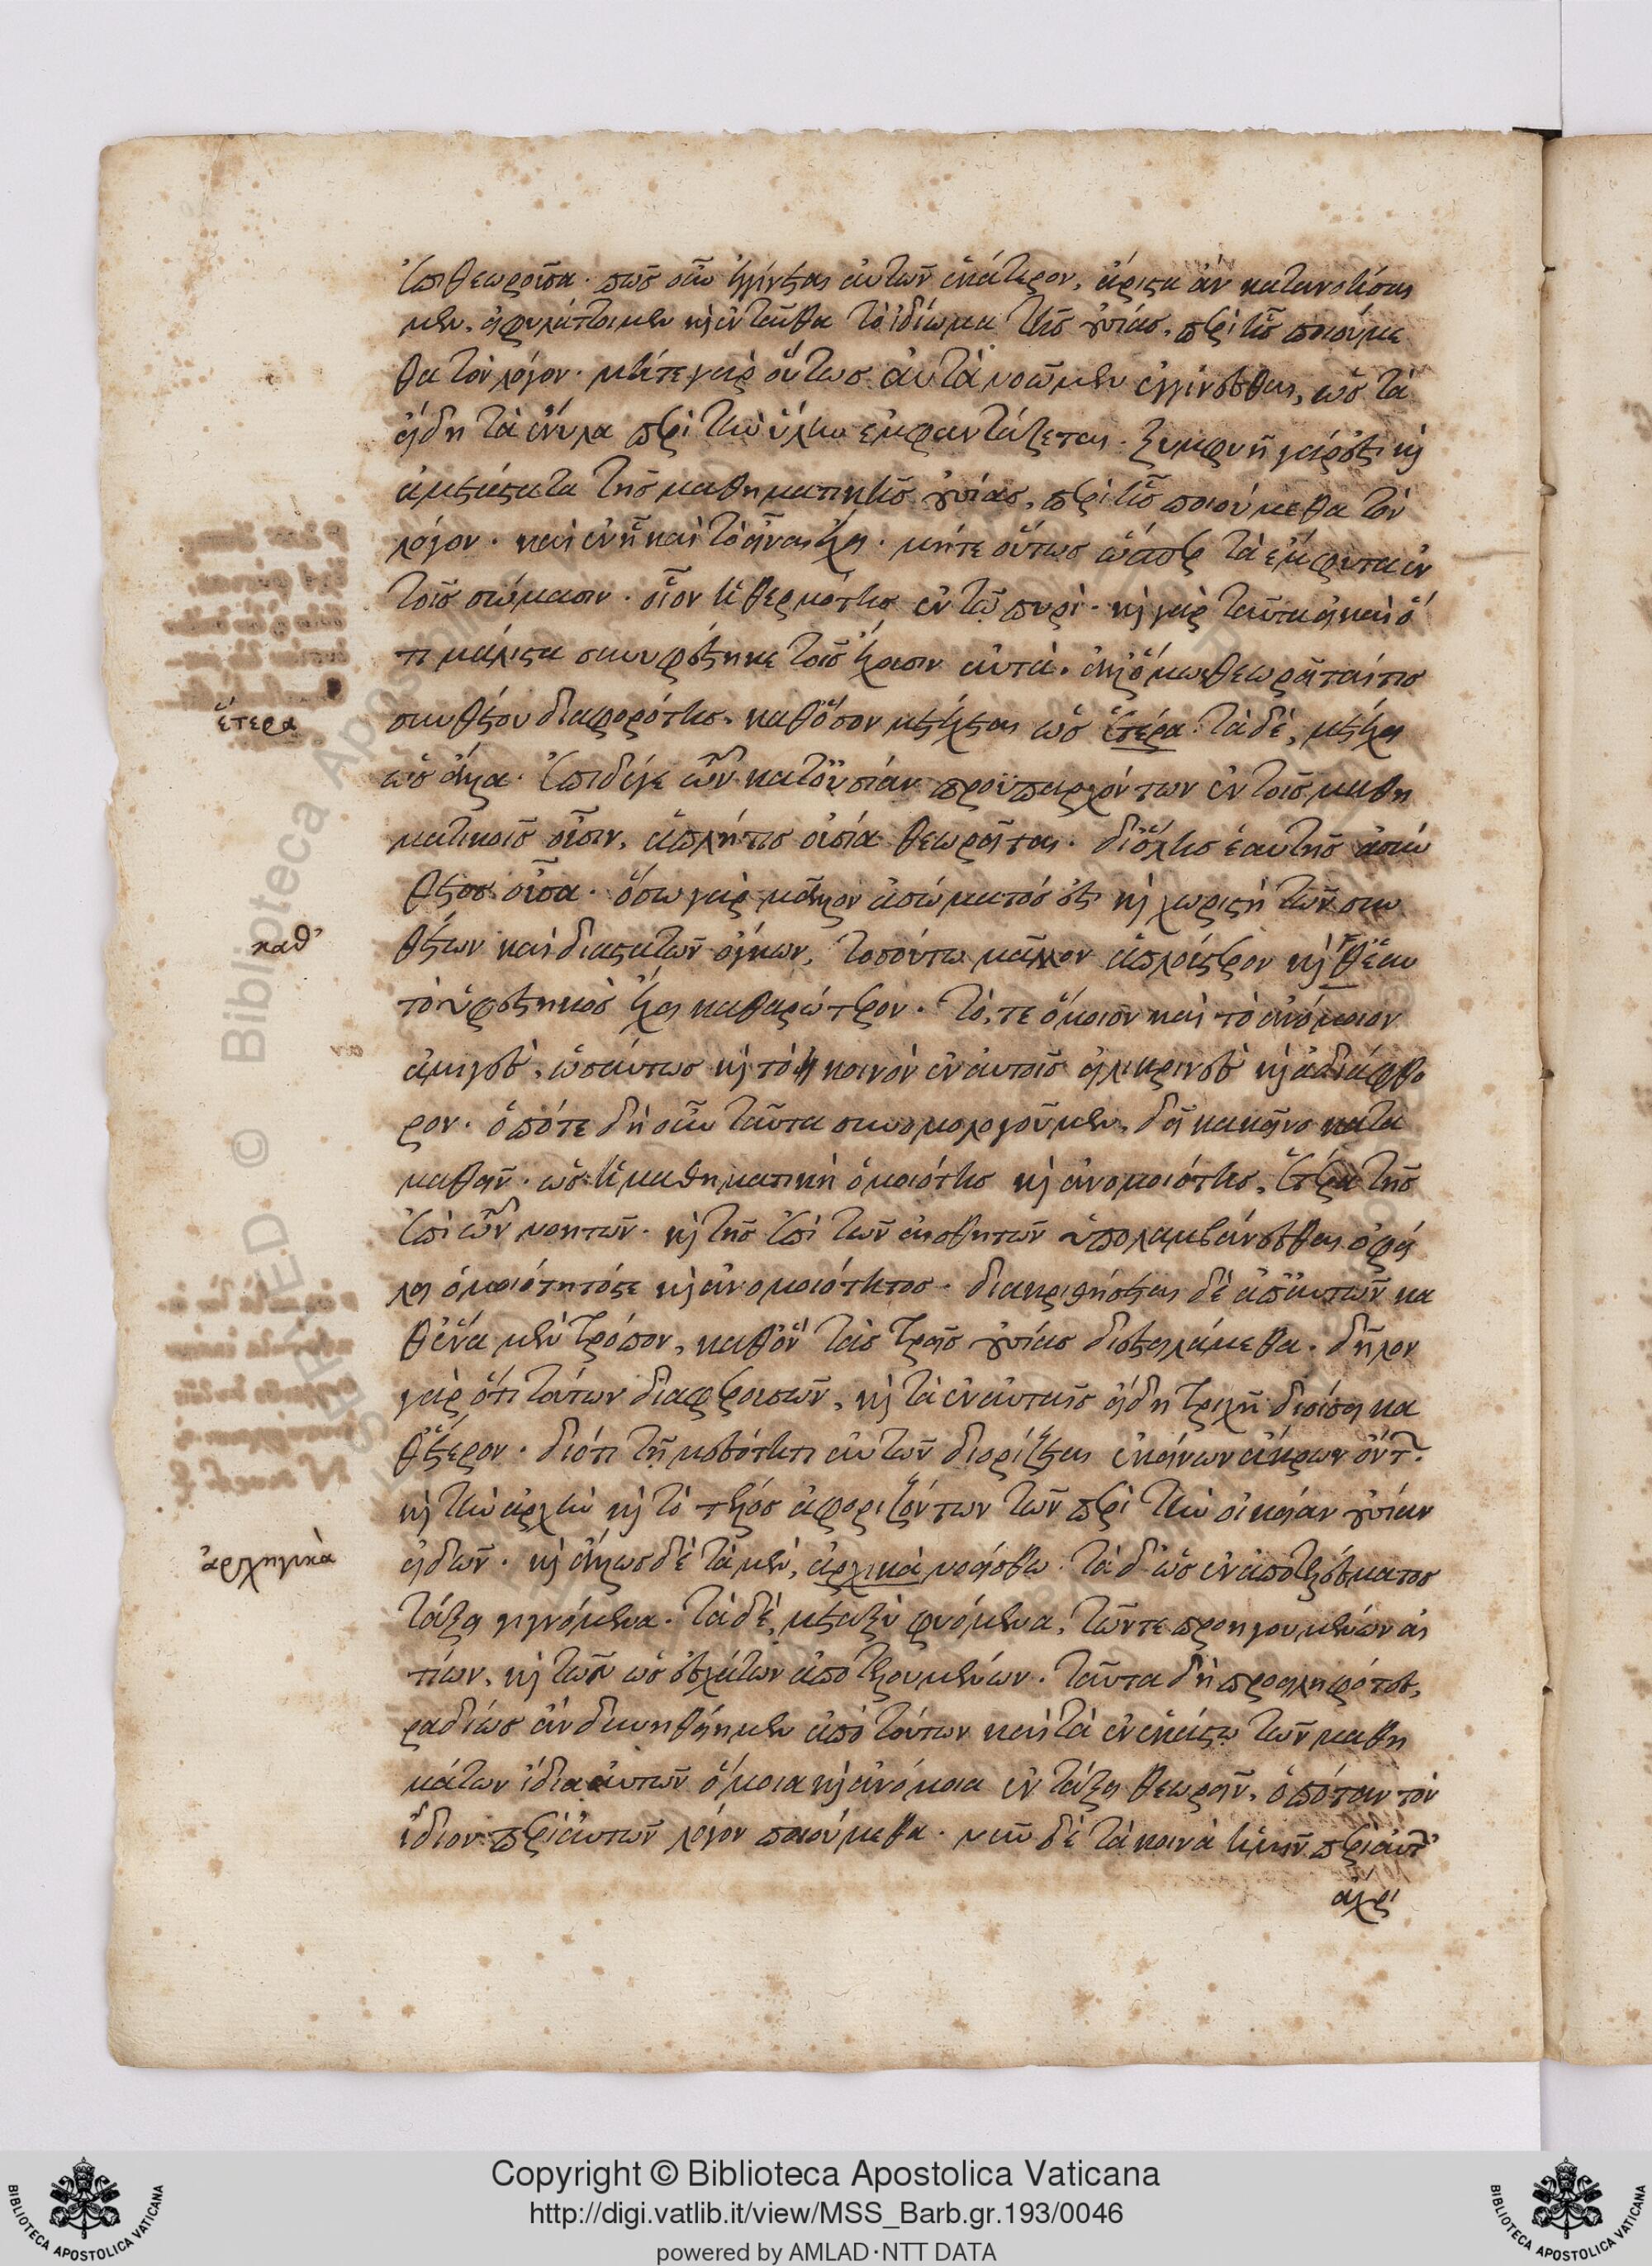 ἐπιθεωροῦσα. πῶς οὖν ἐγγίνεται αὐτῶν ἑκάτερον, ἄριστα ἂν κατανοήσαι
μεν, εἰ φυλάττοιμεν καὶ ἐνταῦθα τὸ ἰδίωμα τῆς οὐσίας, περὶ ἧς ποιούμε
θα τὸν λόγον. μήτε γὰρ οὕτως αὐτὰ νοῶμεν ἐγγίνεσθαι, ὡς τὰ
εἴδη τὰ ἔνυλα περὶ τὴν ὕλην ἐμφαντάζεται. ξυμφυῆ γάρ ἐστι καὶ
ἀμετάστατα τῆς μαθηματικῆς οὐσίας, περὶ ἧς ποιούμεθα τὸν
λόγον. καὶ ἐν ᾗ καὶ τὸ εἶναι ἔχει. μήτε οὕτως ὥσπερ τὰ ἔμφυτα ἐν
τοῖς σώμασιν. οἷον ἡ θερμότης ἐν τῷ πυρὶ. καὶ γὰρ ταῦτα εἰ καὶ ὅ
τι μάλιστα συνυφέστηκε τοῖς ἔχουσιν αὐτὰ. ἀλλ' ὅμως θεωρεῖταί τις
ἕτερα
συνθέτου διαφορότης. καθόσον μετέχεται ὡς ἕτερα τὰ δὲ, μετέχει
ὡς ἄλλα. ἐπὶ δέ γε τῶν κατ' οὐσίαν προϋπαρχόντων ἐν τοῖς μαθη
ματικοῖς οὖσιν, ἁπλῆ τις οὐσία θεωρεῖται. δι' ὅλης ἑαυτῆς ἀσύν
θετος οὖσα. ὅσῳ γὰρ μᾶλλον ἀσώματός ἐστι καὶ χωριστὴ τῶν συν
καθ'
θέτων καὶ διαστατῶν ὄγκων, τοσούτῳ μᾶλλον ἁπλούστερον καὶ θ' ἑαυ
τὸ ὑφεστηκὸς ἔχει καθαρώτερον. τό, τε ὅμοιον καὶ τὸ ἀνόμοιον
ἀμιγὲς, ὡσαύτως καὶ τὸ κοινὸν ἐν αὐτοῖς εἰλικρινὲς καὶ ἀδιάφθο
ρον. ὁπότε δὴ οὖν ταῦτα συνομολογοῦμεν, δεῖ κἀκεῖνο κατα
μαθεῖν. ὡς ἡ μαθηματικὴ ὁμοιότης καὶ ἀνομοιότης, ἑτέρα τῆς
ἐπὶ τῶν νοητῶν. καὶ τῆς ἐπὶ τῶν αἰσθητῶν ὑπολαμβάνεσθαι ὀφεί
λει ὁμοιότητός τε καὶ ἀνομοιότητος. διακριθήσεται δὲ ἀπ' αὐτῶν κα
θ' ἕνα μὲν τρόπον, καθ' ὃν τὰς τρεῖς οὐσίας διεστειλάμεθα. δῆλον
γὰρ ὅτι τούτων διαφερουσῶν, καὶ τὰ ἐν αὐταῖς εἴδη τριχῆ διοίσει κα
θ' ἕτερον. διότι τῇ μεσότητι αὐτῶν διορίζεται ἐκείνων ἄκρων ὄντων.
καὶ τὴν ἀρχὴν καὶ τὸ τέλος ἀφοριζόντων τῶν περὶ τὴν οἰκείαν οὐσίαν
ἀρχηγικὰ
εἰδῶν. καὶ ἄλλως δὲ τὰ μὲν, ἀρχικὰ νοείσθω τὰ δ' ὡς ἐν ἀποτελέσματος
τάξει γιγνόμενα. τὰ δὲ, μεταξὺ φυόμενα, τῶν τε προηγουμένων αἰ
τίων, καὶ τῶν ὡς ἐσχάτων ἀποτελουμένων. ταῦτα δὴ προειληφότες,
ῥᾳδίως ἂν δυνηθείημεν ἀπὸ τούτων καὶ τὰ ἐν ἑκάστῳ τῶν μαθη
μάτων ἴδια αὐτῶν ὅμοια καὶ ἀνόμοια ἐν τάξει θεωρεῖν, ὁπόταν τὸν
ἴδιον περὶ αὐτῶν λόγον ποιούμεθα. νῦν δὲ τὰ κοινὰ ἡμῖν περὶ αὐτῶν